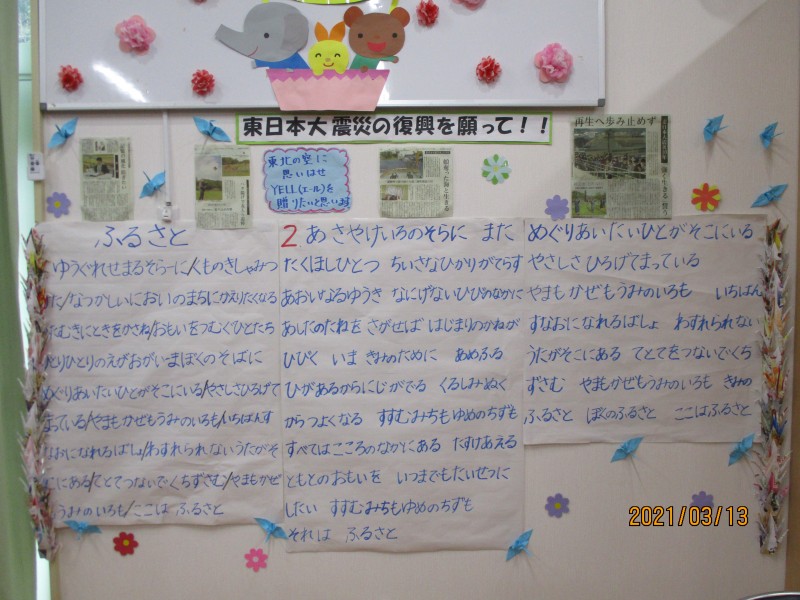 東日本大震災の復興を願って！！
東北の空に
思いはせ
YELL(エール)を
贈りたいと思います
再生へ歩み止めず
ふるさと
ゆうぐれせまるそらーに/くものきしゃみつ
た/なつかしいにおいのまちにかえりたくなる
たむきにときをかさね/おもいをつむぐひとたち
ひとりひとりのえがおがいまぼくのそばに
めぐりあいたいひとがそこにいる/やさしさひろげて
まっている/やまもかぜもうみのいろも/いちばんす
なおになれるばしょ/わすれられないうたがそ
こにある/てとてつないでくちずさむ/やまもかぜ
もうみのいろも/ここは ふるさと
2 あさやけいろのそらに また
たくほしひとつ ちいさなひかりがてらす
あおいなるゆうき なにげないひびのなかに
あしたのたねを さがせば はじまりのかねが
ひびく いま きみのために あめふる
ひがあるからにじがでる くるしみぬく
からつよくなる すすむみちもゆめのちずも
すべてはこころのなかにある たすけあえる
ともとのおもいを いつまでもたいせつに
したい すすむみちもゆめのちずも
それは ふるさと
めぐりあいたいひとがそこにいる
やさしさ ひろげてまっている
やまも かぜもうみのいろも いちばん
すなおになれるばしょ わすれられない
うたがそこにある てとてをつないでくち
ずさむ やまもかぜもうみのいろも きみの
ふるさと ぼくのふるさと ここはふるさと
2021/03/13